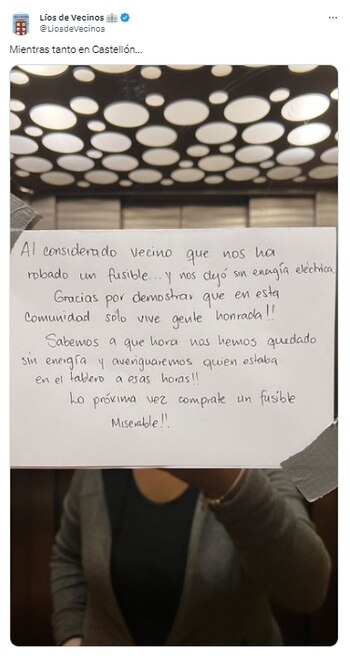 Líos de Vecinos
@LiosdeVecinos
Mientras tanto en Castellón...
Al considerado vecino que nos ha
robado un fusible... y nos dejó sin energía eléctrica
Gracias por demostrar que en esta
comunidad sólo vive gente honrada!!
Sabemos a que hora nos hemos quedado
sin energía y averiguaremos quien estaba
en el tablero a esas horas!!
La próxima vez comprate un fusible
Miserable!!